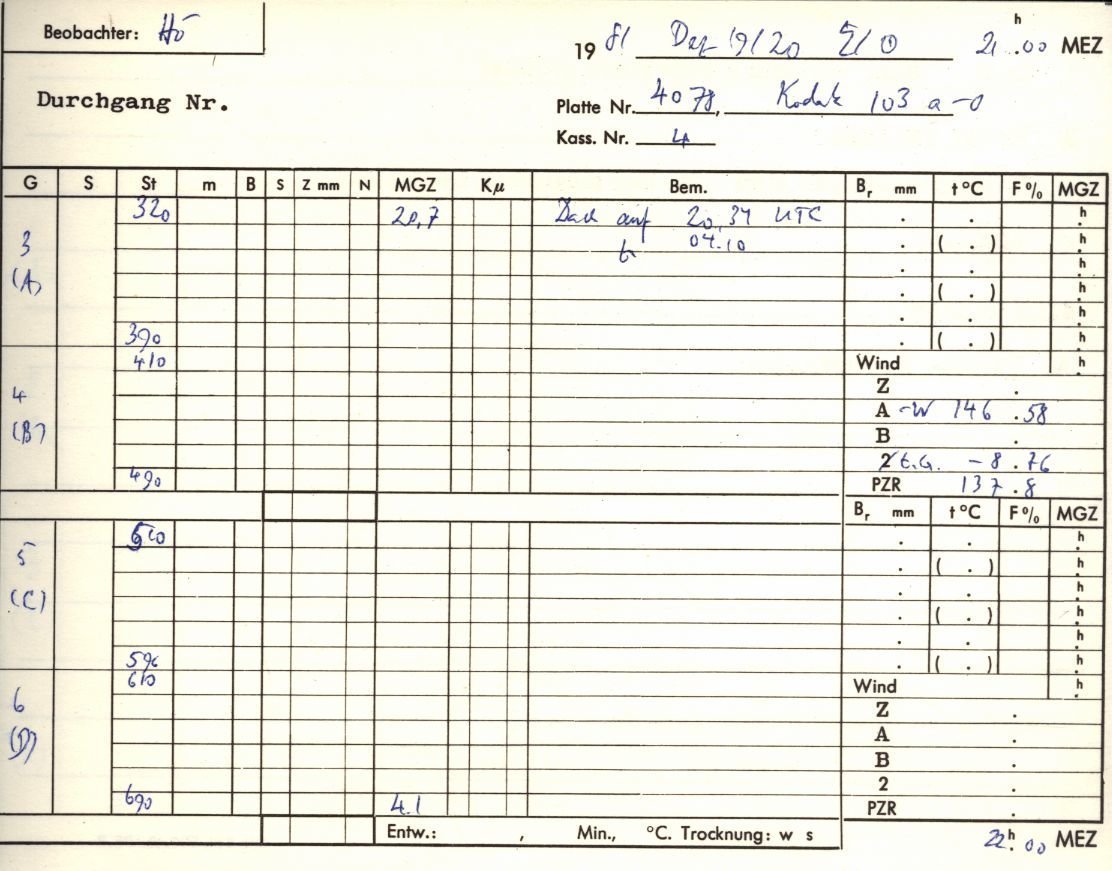 Beobachter: Hö
19 81 Dez 19/20 5/0 21 h .00 MEZ
Durchgang Nr.
Platte Nr. 4078, Kodak 103 a-0
Kass. Nr. 4
G S St m B S Z mm N MGZ Kμ Bem. Br mm t°C F% MGZ
320 20,7 Dach auf 20.34 UTC . . h
3 04.10 . ( . ) h
(A) . . h
. ( . ) h
. . h
390 . ( . ) h
410 Wind h
Z .
4 A -W 146.58
(B) B .
490 2 t.G. -8.76
PZR 137.8
Br mm t°C F% MGZ
500 . . h
5 . ( . ) h
. . h
(C) . ( . ) h
. . h
590 . ( . ) h
610 Wind h
6 Z .
(D) A .
B .
2 .
690 4.1 PZR .
Entw.: , Min., °C. Trocknung: w s
22 h .00 MEZ